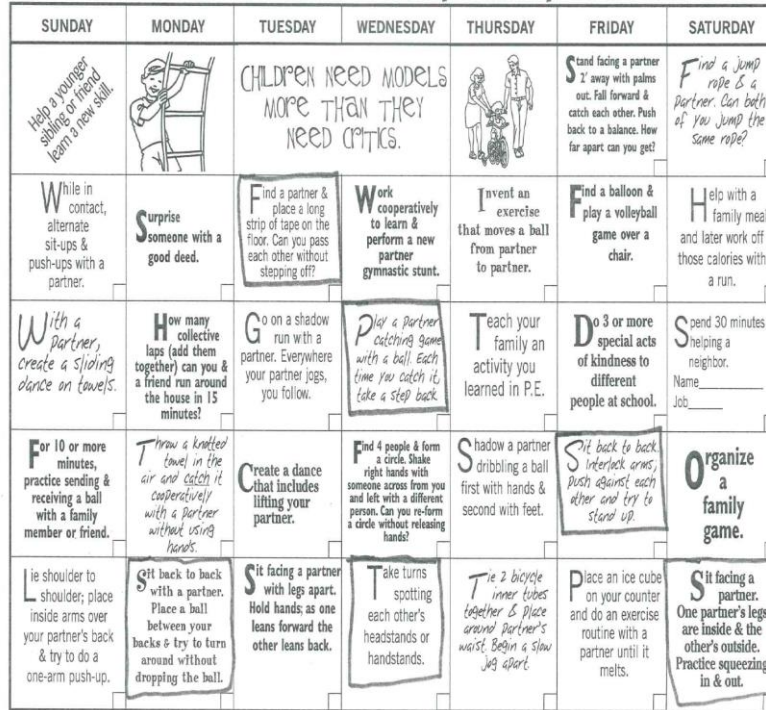 SUNDAY MONDAY TUESDAY WEDNESDAY THURSDAY FRIDAY SATURDAY
Help a younger
sibling or friend
learn a new skill.
CHILDREN NEED MODELS
MORE THAN THEY
NEED CRITICS.
Stand facing a partner
2' away with palms
out. Fall forward &
catch each other. Push
back to a balance. How
far apart can you get?
Find a jump
rope & a
partner. Can both
of you jump the
same rope?
While in
contact,
alternate
sit-ups &
push-ups with a
partner.
Surprise
someone with a
good deed.
Find a partner &
place a long
strip of tape on the
floor. Can you pass
each other without
stepping off?
Work
cooperatively
to learn &
perform a new
partner
gymnastic stunt.
Invent an
exercise
that moves a ball
from partner
to partner.
Find a balloon &
play a volleyball
game over a
chair.
Help with a
family meal
and later work off
those calories with
a run.
With a
partner,
create a sliding
dance on towels.
How many
collective
laps (add them
together) can you &
a friend run around
the house in 15
minutes?
Go on a shadow
run with a
partner. Everywhere
your partner jogs,
you follow.
Play a partner
catching game
with a ball. Each
time you catch it,
take a step back.
Teach your
family an
activity you
learned in P.E.
Do 3 or more
special acts
of kindness to
different
people at school.
Spend 30 minutes
helping a
neighbor.
Name
Job
For 10 or more
minutes,
practice sending &
receiving a ball
with a family
member or friend.
Throw a knotted
towel in the
air and catch it
cooperatively
with a partner
without using
hands.
Create a dance
that includes
lifting your
partner.
Find 4 people & form
a circle. Shake
right hands with
someone across from you
and left with a different
person. Can you re-form
a circle without releasing
hands?
Shadow a partner
dribbling a ball
first with hands &
second with feet.
Sit back to back.
Interlock arms,
push against each
other and try to
stand up.
Organize
a
family
game.
Lie shoulder to
shoulder; place
inside arms over
your partner's back
& try to do a
one-arm push-up.
Sit back to back
with a partner.
Place a ball
between your
backs & try to turn
around without
dropping the ball.
Sit facing a partner
with legs apart.
Hold hands; as one
leans forward the
other leans back.
Take turns
spotting
each other's
headstands or
handstands.
Tie 2 bicycle
inner tubes
together & place
around partner's
waist. Begin a slow
jog apart.
Place an ice cube
on your counter
and do an exercise
routine with a
partner until it
melts.
Sit facing a
partner.
One partner's legs
are inside & the
other's outside.
Practice squeezing
in & out.